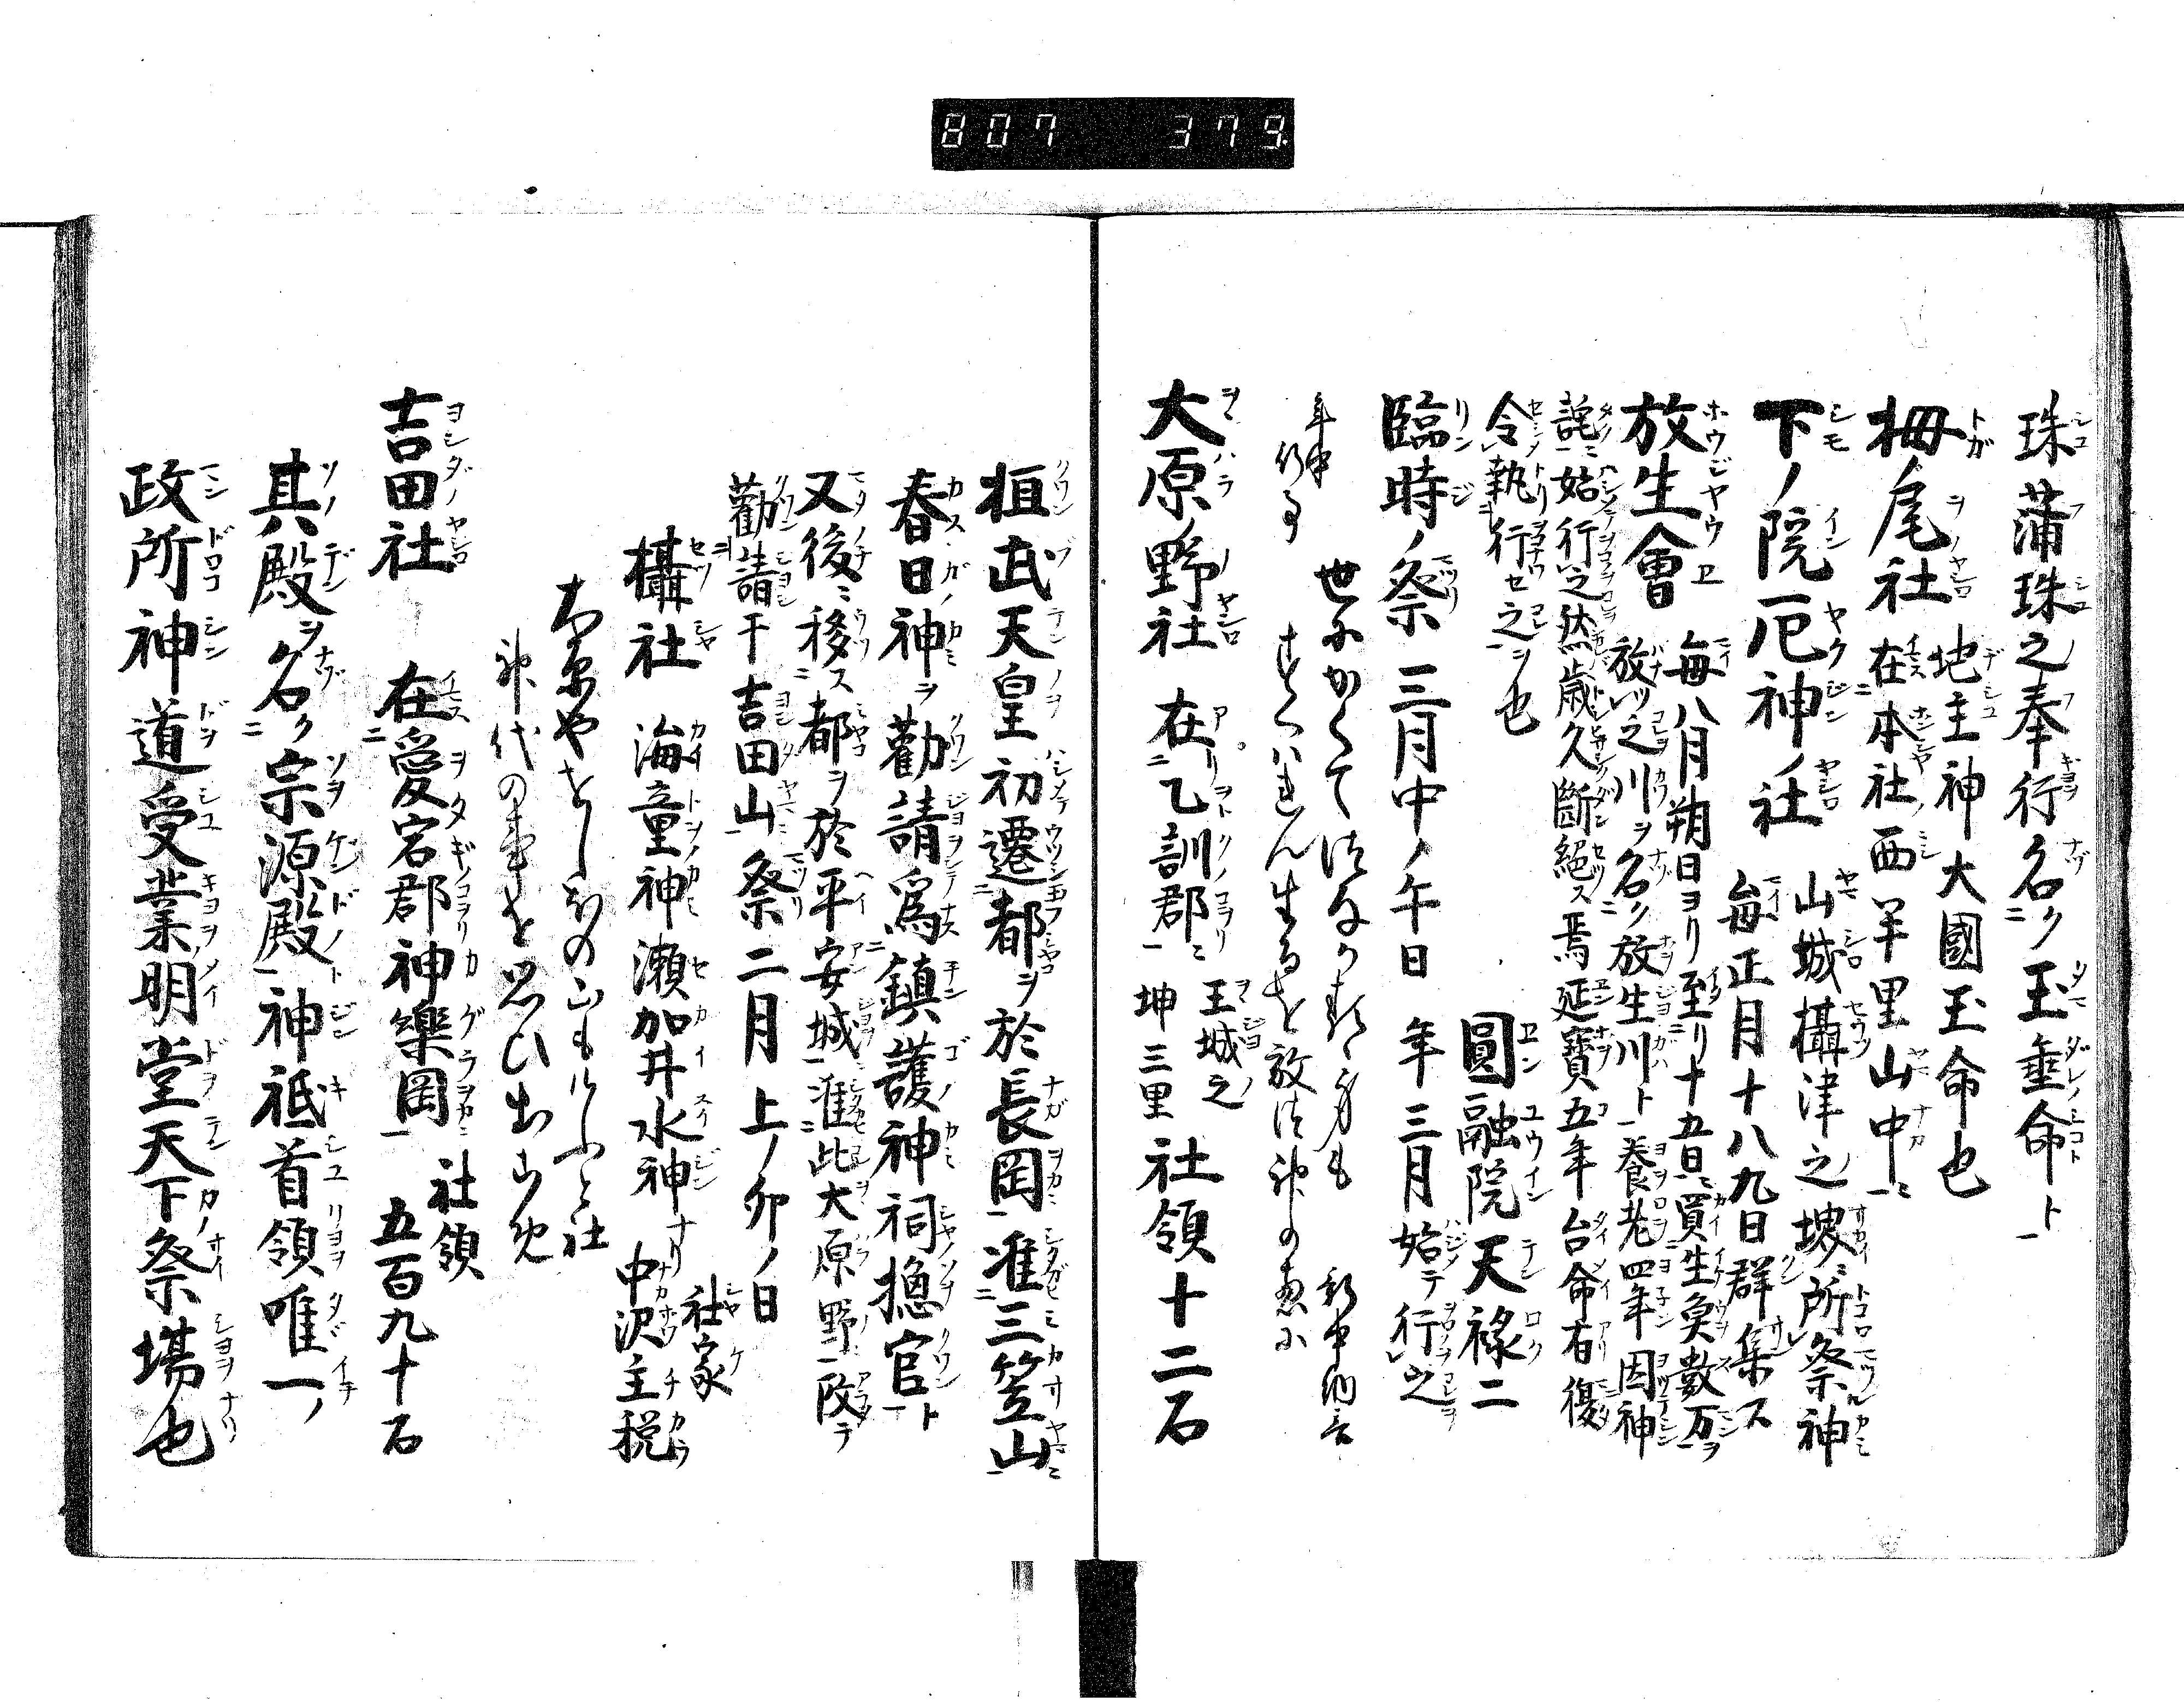 807 379
珠蒲珠之奉行名ク玉垂命ト
栂ノ尾社 地主神大國玉命也
在本社ノ西半里山中ニ
下ノ院厄神ノ社 山城攝津之堺ニ所祭神
毎正月十八九日群集ス
放生會 毎八月朔日ヨリ至リ十五日ニ買生魚數万ヲ
放ツ之川ヲ名ク放生川ト養老四年因神
託ニ始行之然歳久断絕ス焉延寶五年台命有復
令執行セ之ヲ也
臨時ノ祭 三月中ノ午日 圓融院天祿二
年三月始テ行之
年中行事 世にかくて
生るを放
大原野社 在乙訓郡ニ 王城之
坤三里 社領十二石
桓武天皇初遷都ヲ於長岡准三笠山
春日神ヲ勸請爲鎮護神祠摠官ト
又後ニ移ス都ヲ於平安城ニ准此大原野改テ
勸請于吉田山祭二月上ノ卯ノ日
攝社 海童神 瀬加井水神ナリ 社家
中沢主税
大原やをしほの山もけふこ社
神代の事を思ひ出らめ
吉田社 在愛宕郡神樂岡 社領
五百九十石
其殿ヲ名ク宗源殿ト神祇首領唯一ノ
政所神道受業明堂天下祭場也